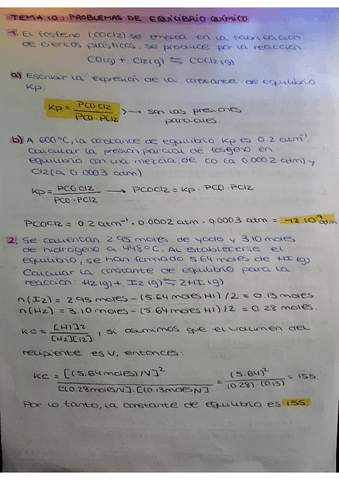 TEMA 10: PROBLEMAS DE EQUILIBRIO QUÍMICO
1. El fosfeno (COCl2) se emplea en la fabricación
de ciertos plásticos. Se produce por la reacción:
CO(g) + Cl2(g) ⇌ COCl2(g)
a) Escribir la expresión de la constante de equilibrio
Kp.
Kp = PCOCl2 / PCO · PCl2 → son las presiones
parciales.
b) A 600°C, la constante de equilibrio Kp es 0.2 atm⁻¹.
Calcular la presión parcial de fosgeno en
equilibrio con una mezcla de CO (a 0.0002 atm) y
Cl2 (a 0.0003 atm)
Kp = PCOCl2 / PCO · PCl2 → PCOCl2 = Kp · PCO · PCl2
PCOCl2 = 0.2 atm⁻¹ · 0.0002 atm · 0.0003 atm =
2. Se calientan 2.95 moles de yodo y 3.10 moles
de hidrógeno a 448°C. Al establecerse el
equilibrio, se han formado 5.64 moles de HI(g)
Calcular la constante de equilibrio para la
reacción: H2(g) + I2(g) ⇌ 2HI(g)
n(I2) = 2.95 moles - (5.64 moles HI)/2 = 0.13 moles
n(H2) = 3.10 moles - (5.64 moles HI)/2 = 0.28 moles.
KC = [HI]² / [H2][I2], si asumimos que el volumen del
recipiente es V, entonces:
KC = [(5.64 moles)/V]² / [(0.28 moles/V].[(0.13 moles/V] = (5.64)² / (0.28)·(0.13) = 155.
Por lo tanto, la constante de equilibrio es 155.